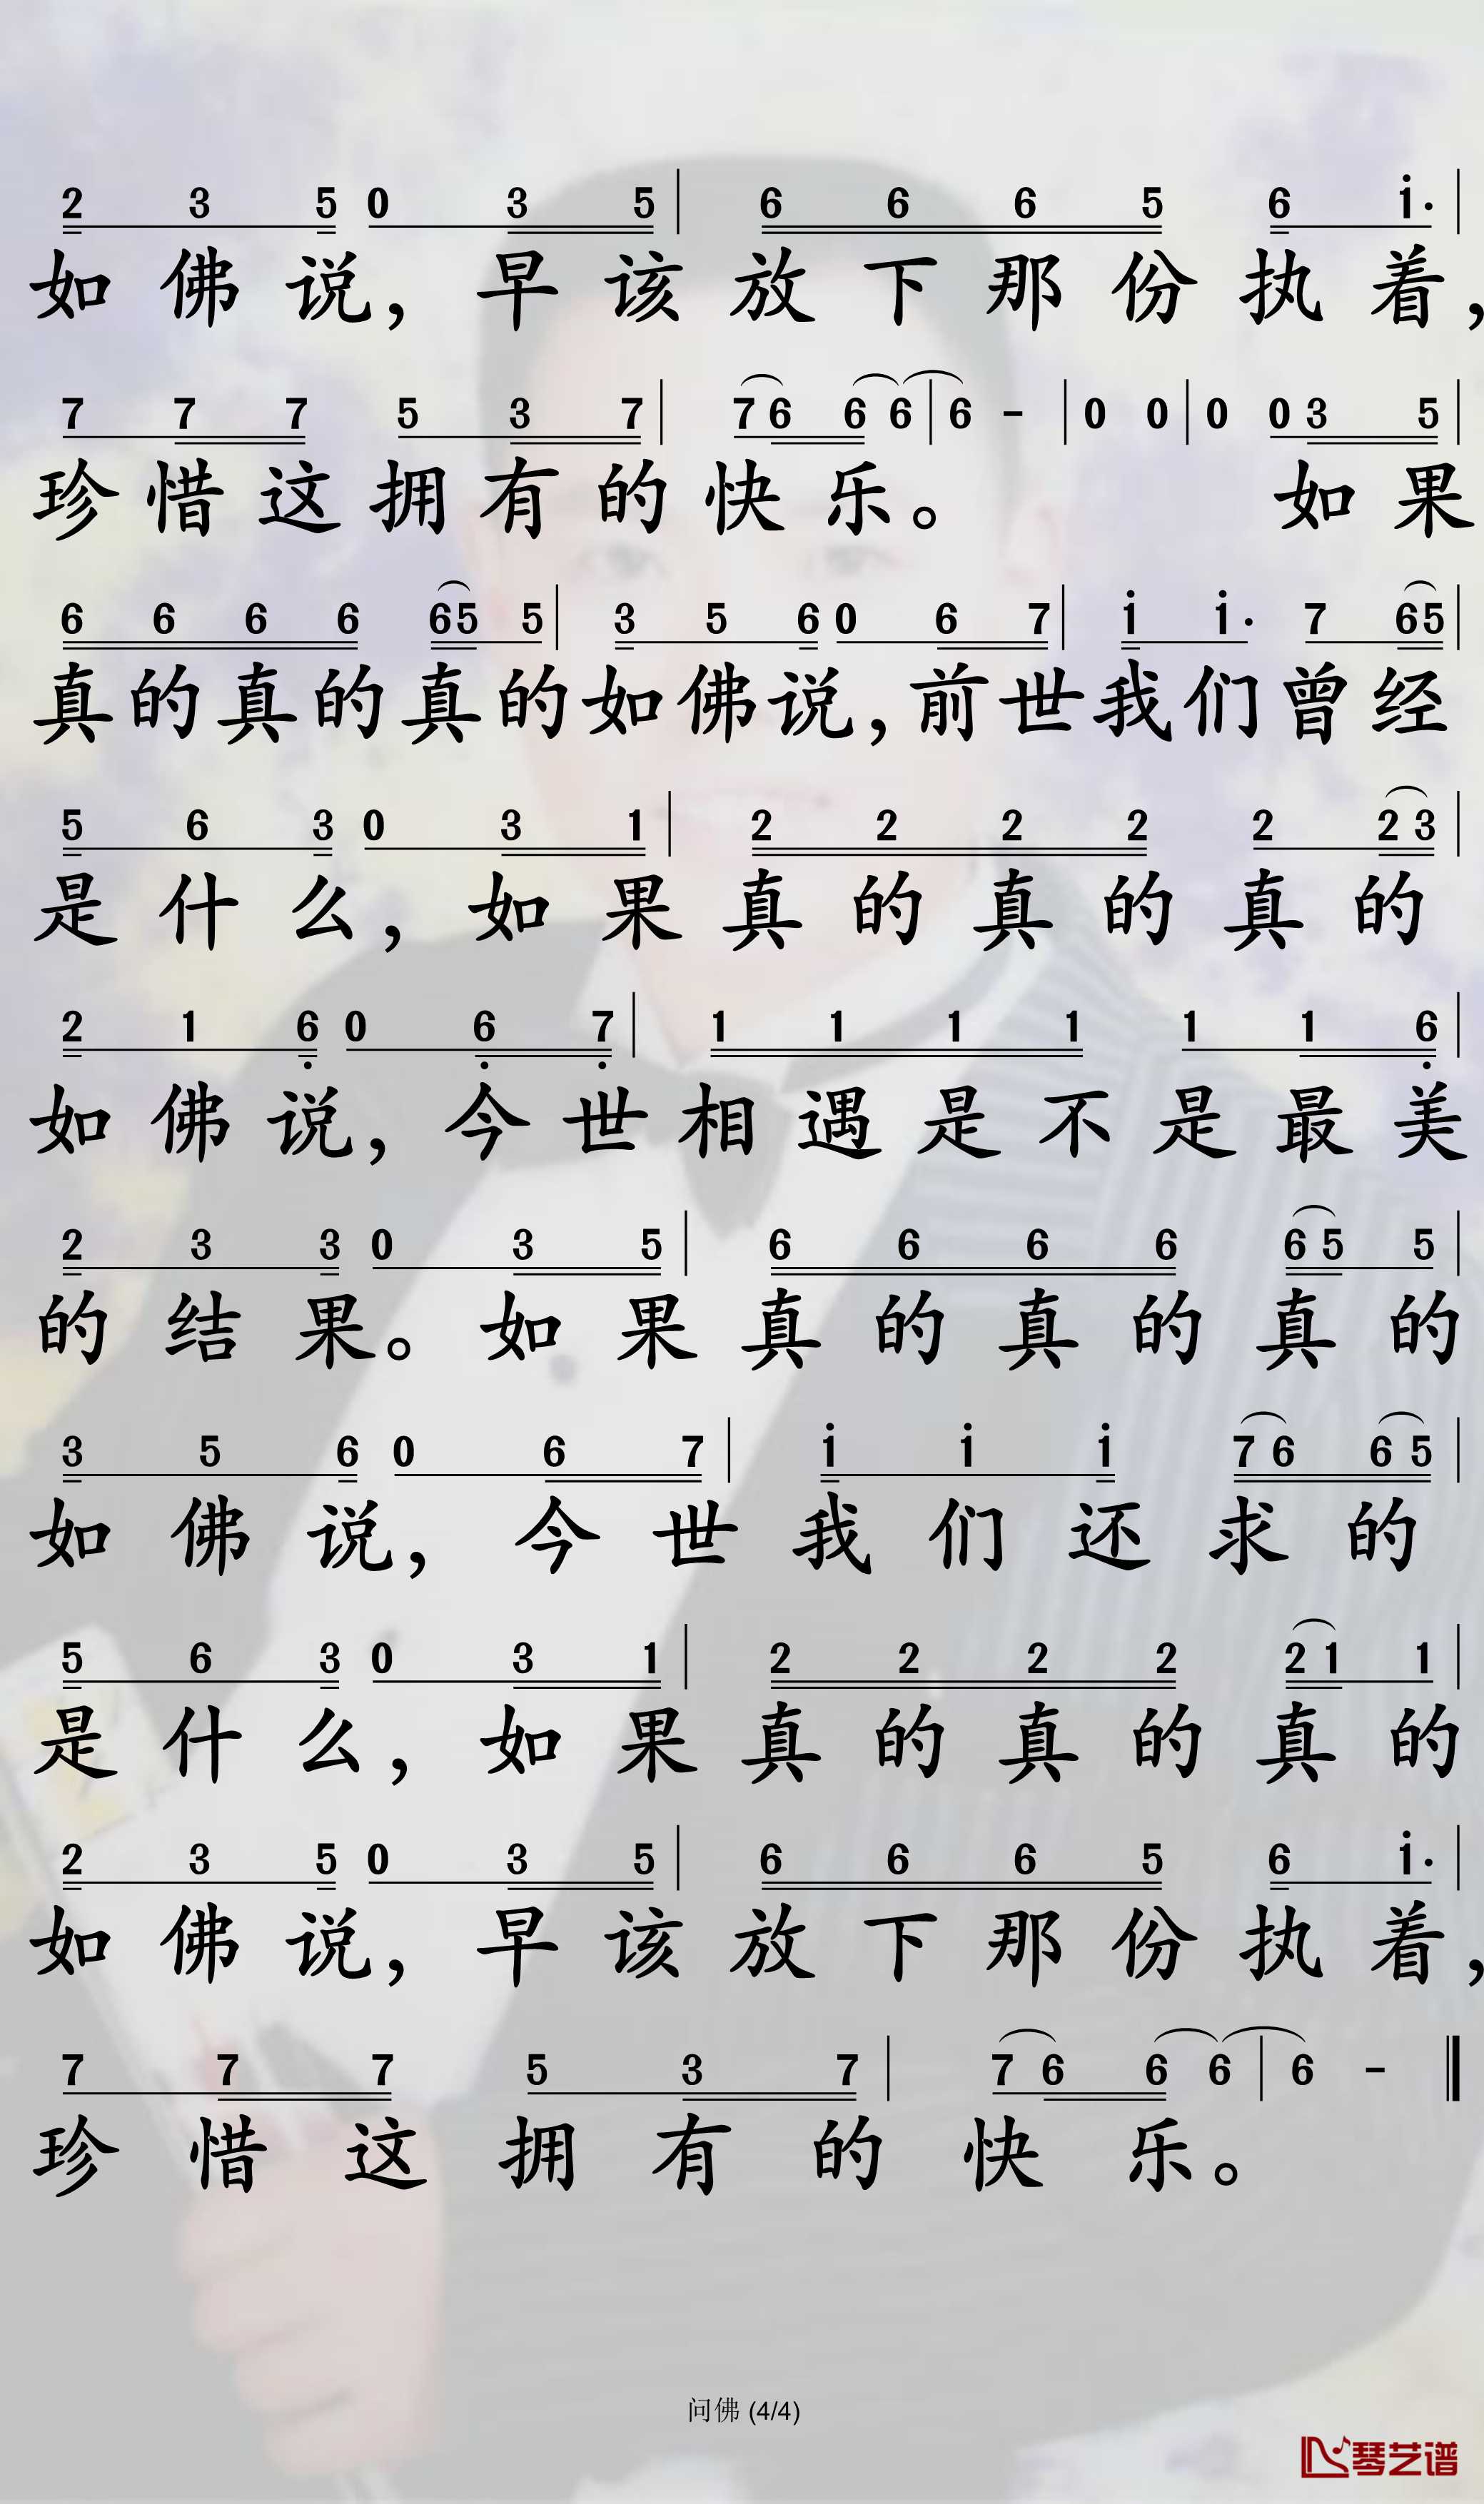 2 3 5 0 3 5 | 6 6 6 5 6 i· |
如佛说，早该放下那份执着，
7 7 7 5 3 7 | 7 6 6 6 | 6 - | 0 0 | 0 0 3 5 |
珍惜这拥有的快乐。 如果
6 6 6 6 6 5 5 | 3 5 6 0 6 7 | i i· 7 6 5 |
真的真的真的如佛说，前世我们曾经
5 6 3 0 3 1 | 2 2 2 2 2 2 3 |
是什么，如果真的真的真的
2 1 6 0 6 7 | 1 1 1 1 1 1 6 |
如佛说，今世相遇是不是最美
2 3 3 0 3 5 | 6 6 6 6 6 5 5 |
的结果。如果真的真的真的
3 5 6 0 6 7 | i i i 7 6 6 5 |
如佛说，今世我们还求的
5 6 3 0 3 1 | 2 2 2 2 2 1 1 |
是什么，如果真的真的真的
2 3 5 0 3 5 | 6 6 6 5 6 i· |
如佛说，早该放下那份执着，
7 7 7 5 3 7 | 7 6 6 6 | 6 - ‖
珍惜这拥有的快乐。
问佛 (4/4)
琴艺谱